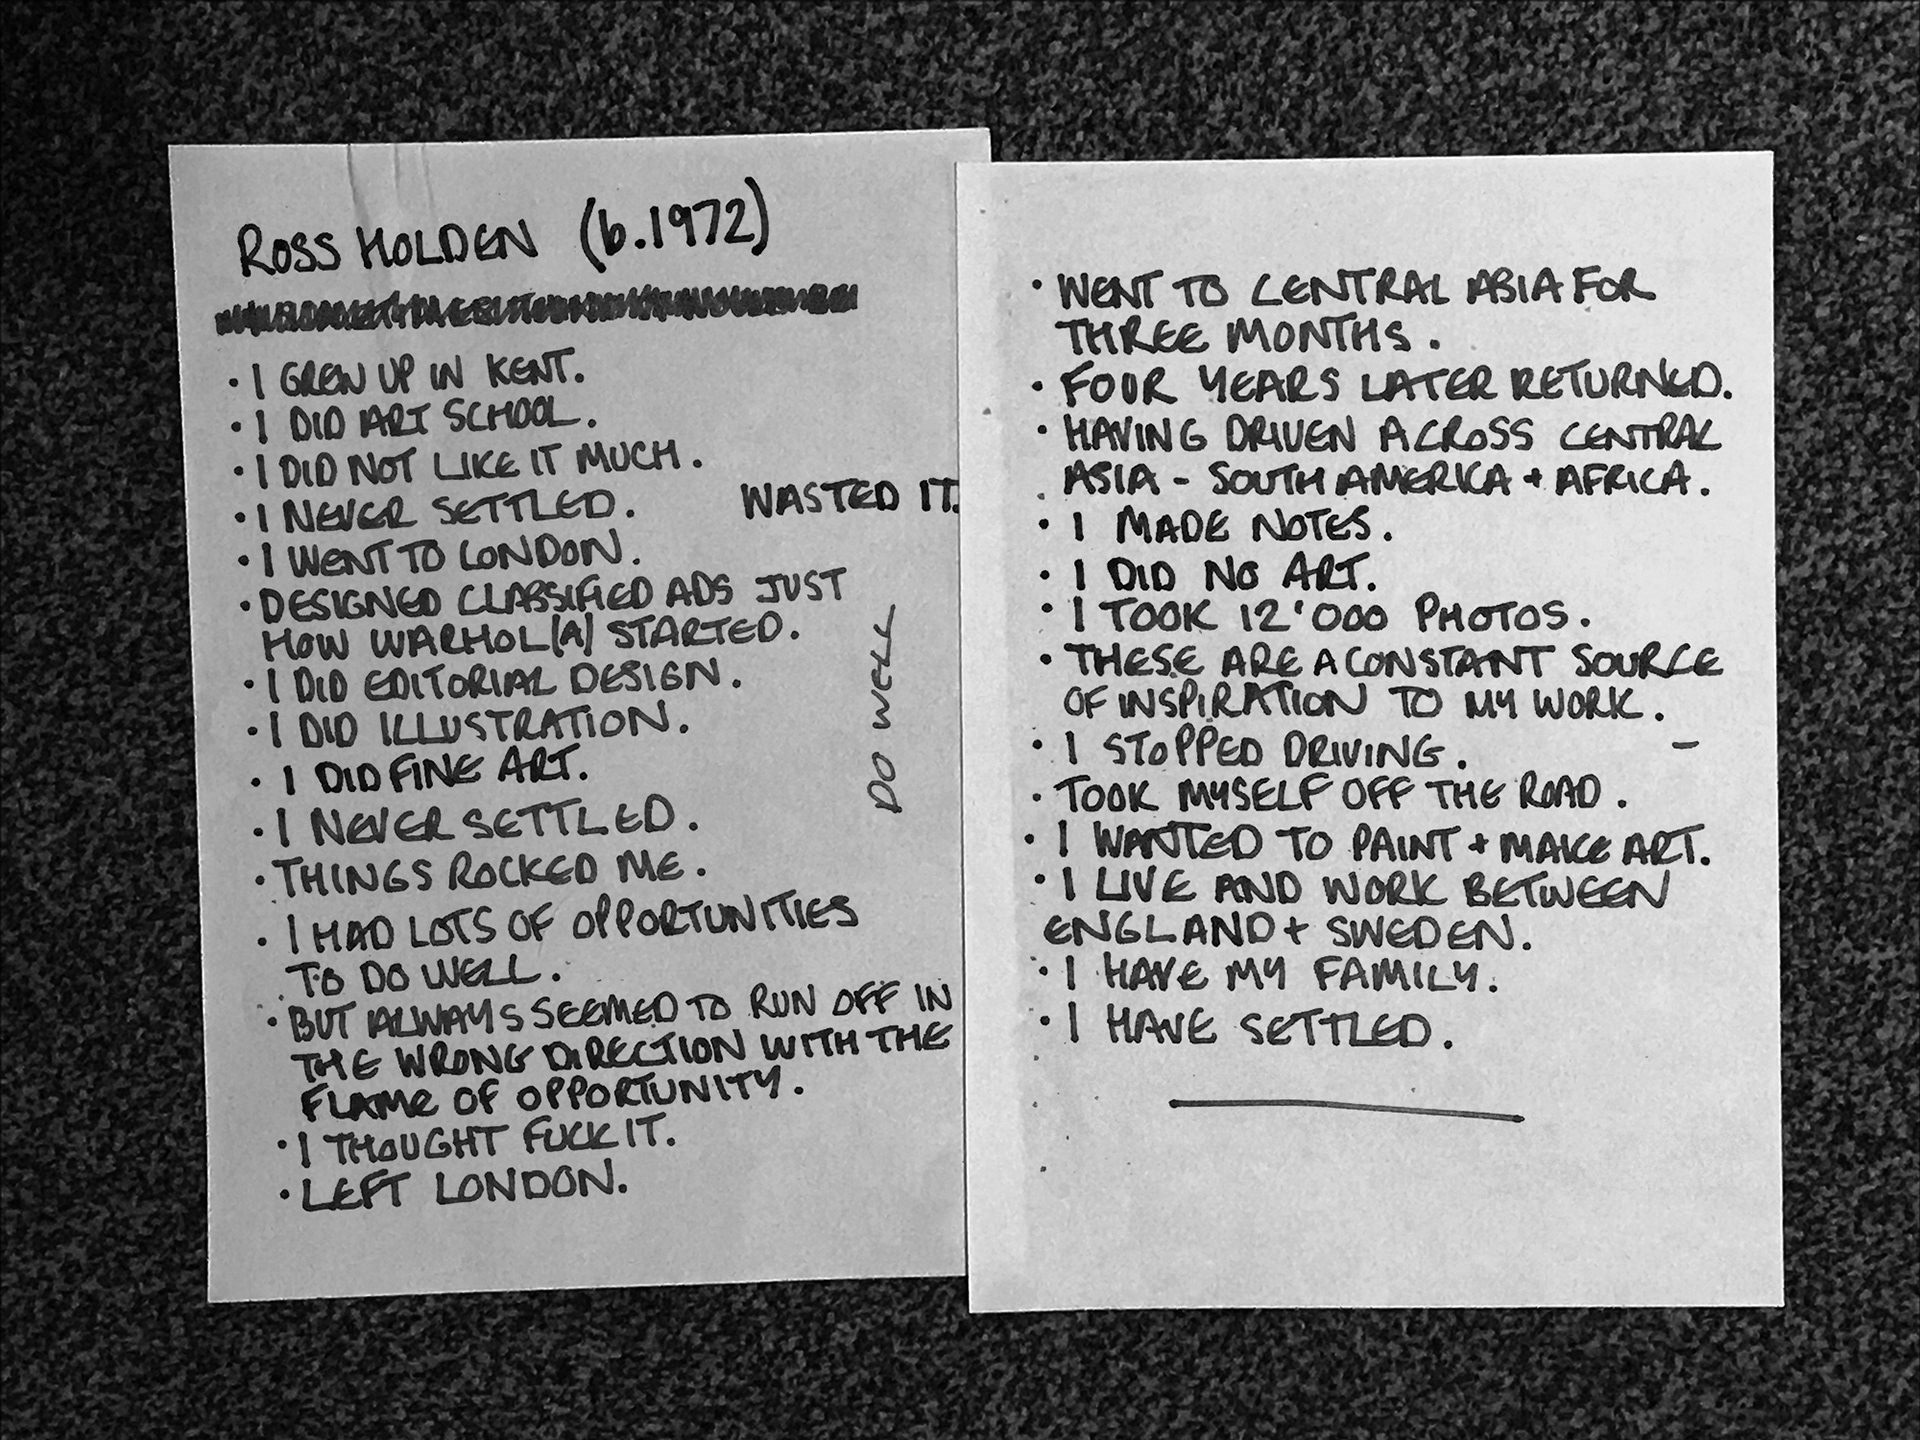 ROSS HOLDEN (b.1972)
• I GREW UP IN KENT.
• I DID ART SCHOOL.
• I DID NOT LIKE IT MUCH.
• I NEVER SETTLED. WASTED IT.
• I WENT TO LONDON.
• DESIGNED CLASSIFIED ADS JUST
HOW WARHOL(A) STARTED.
• I DID EDITORIAL DESIGN.
• I DID ILLUSTRATION.
• I DID FINE ART.
DO WELL
• I NEVER SETTLED.
• THINGS ROCKED ME.
• I HAD LOTS OF OPPORTUNITIES
TO DO WELL.
• BUT ALWAYS SEEMED TO RUN OFF IN
THE WRONG DIRECTION WITH THE
FLAME OF OPPORTUNITY.
• I THOUGHT FUCK IT.
• LEFT LONDON.
• WENT TO CENTRAL ASIA FOR
THREE MONTHS.
• FOUR YEARS LATER RETURNED.
• HAVING DRIVEN ACROSS CENTRAL
ASIA - SOUTH AMERICA + AFRICA.
• I MADE NOTES.
• I DID NO ART.
• I TOOK 12'000 PHOTOS.
• THESE ARE A CONSTANT SOURCE
OF INSPIRATION TO MY WORK.
• I STOPPED DRIVING. -
• TOOK MYSELF OFF THE ROAD.
• I WANTED TO PAINT + MAKE ART.
• I LIVE AND WORK BETWEEN
ENGLAND + SWEDEN.
• I HAVE MY FAMILY.
• I HAVE SETTLED.